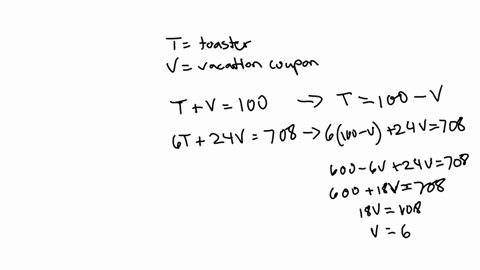 T = toaster
V = vacation coupon
T + V = 100 → T = 100 - V
6T + 24V = 708 → 6(100 - V) + 24V = 708
600 - 6V + 24V = 708
600 + 18V = 708
18V = 108
V = 6